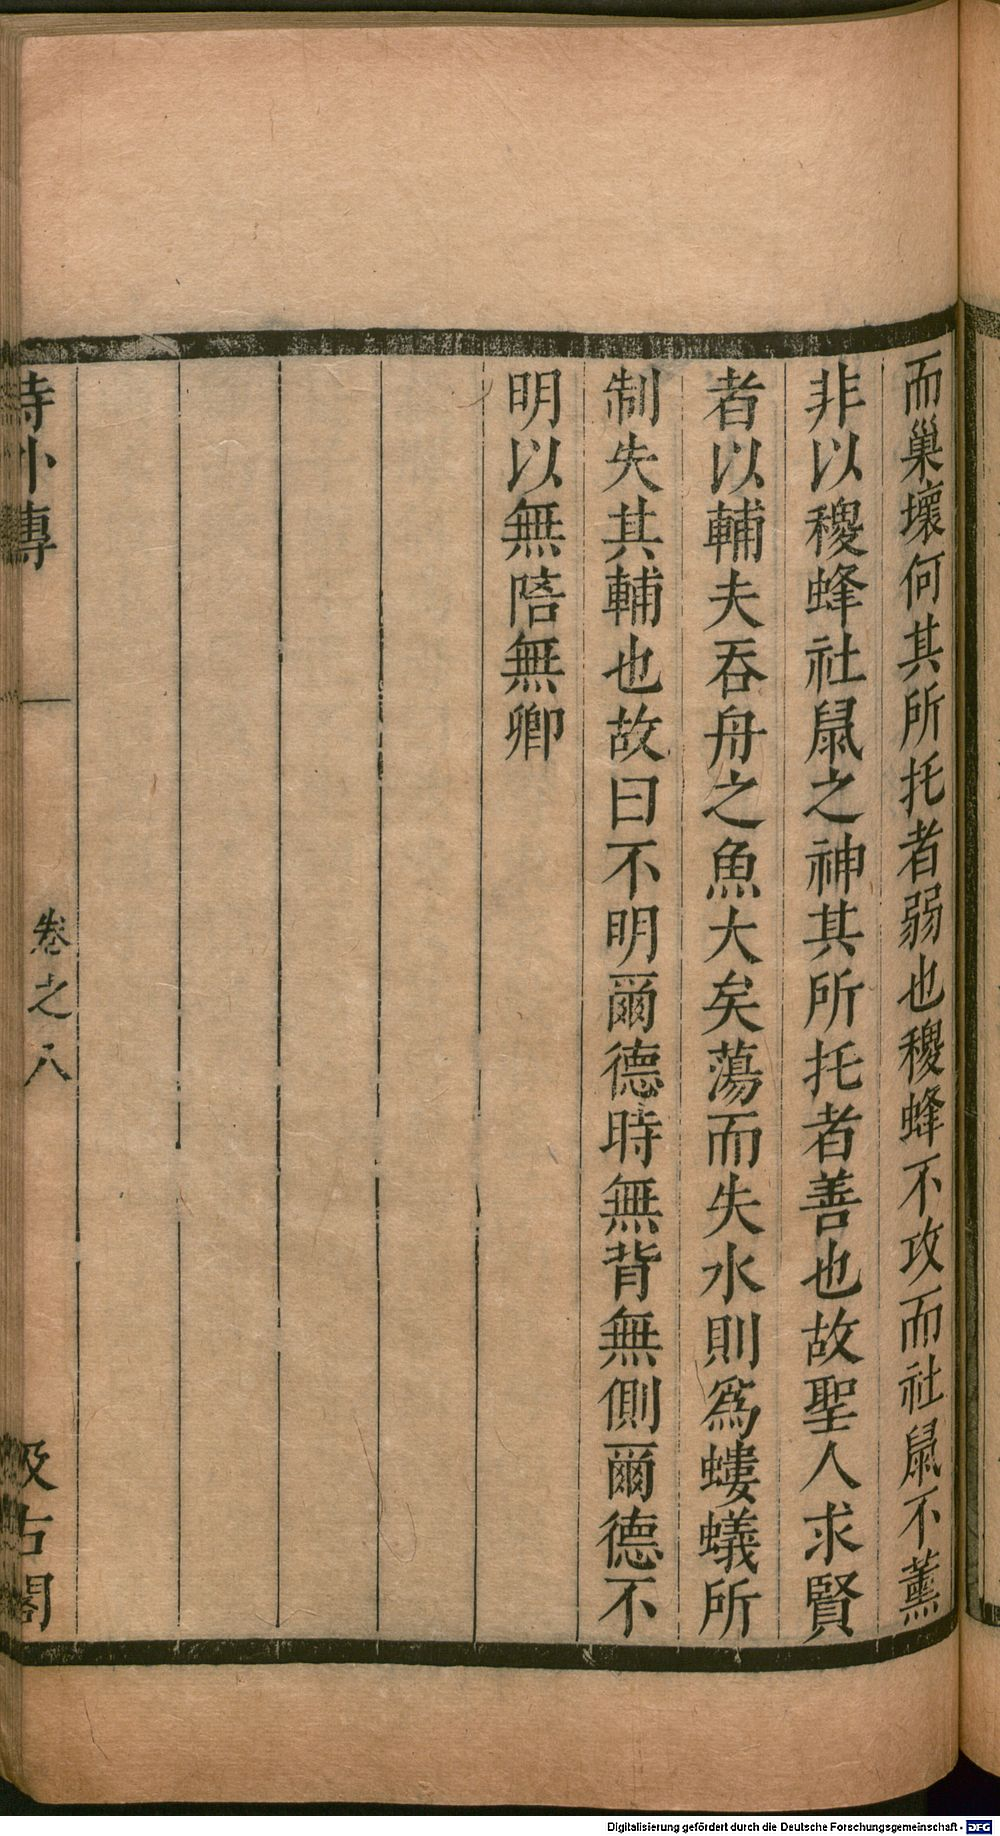 而巢壞何其所托者弱也稷蜂不攻而社鼠不薰
非以稷蜂社鼠之神其所托者善也故聖人求賢
者以輔夫吞舟之魚大矣蕩而失水則爲螻蟻所
制失其輔也故曰不明爾德時無背無側爾德不
明以無陪無卿
詩外傳 卷之八 汲古閣
Digitalisierung gefördert durch die Deutsche Forschungsgemeinschaft - DFG